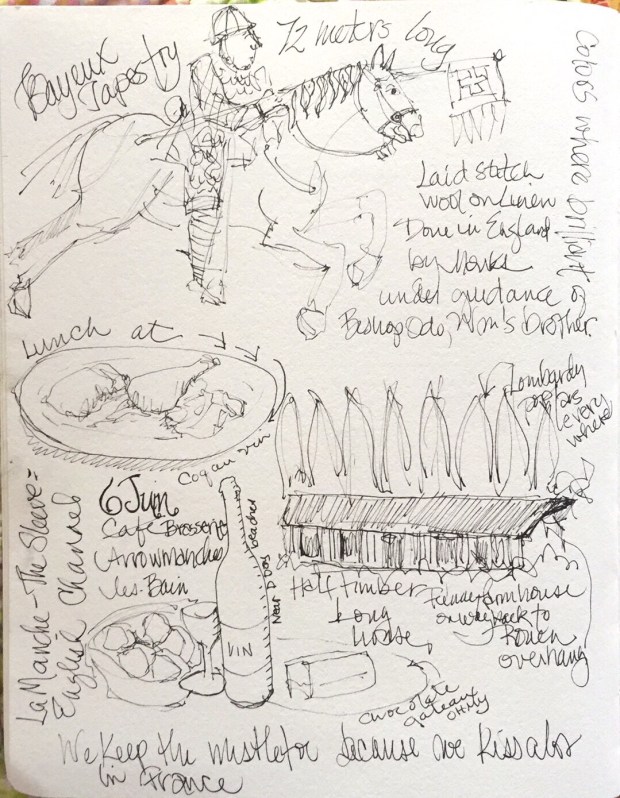 Bayeux
Tapestry
72 meters long
Colors where brilliant
Laid stitch
wool on Linen
Done in England
by Monks
under guidance of
Bishop Odo, Wm's brother.
Lunch at
Coq au vin
Lombardy
poplars
every
where
6 Juin
Cafe Brasserie
Arrowmanche
les-Bain
La Manche - The Sleeve =
English Channel
Near D Day beaches
VIN
Half Timber
Long
house
farmhouse
on way back to
Rouen
overhang
Chocolate
gateau
We Keep the mistletoe because we Kiss alot
in France